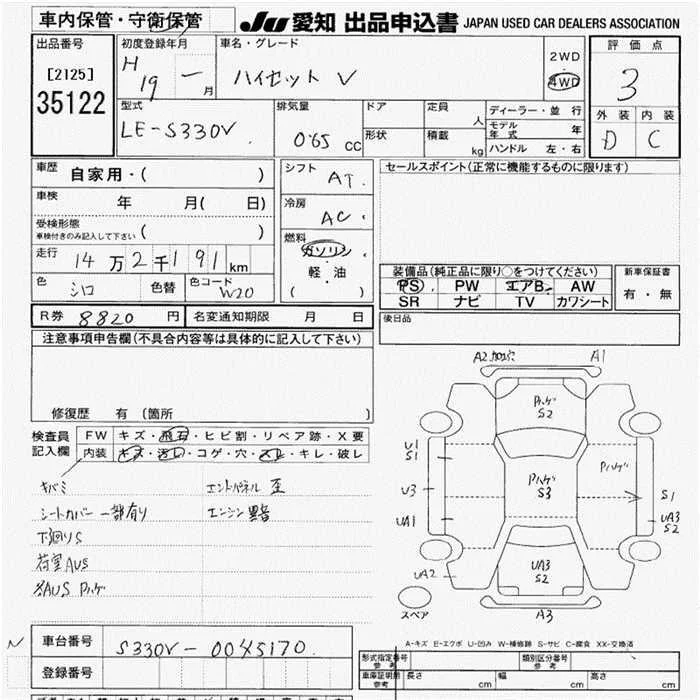 車内保管・守衛保管
JU 愛知 出品申込書 JAPAN USED CAR DEALERS ASSOCIATION
出品番号
[2125]
35122
初度登録年月
H 19 一 月
車名・グレード
ハイゼット V
2WD
・
4WD
評価点
3
外装 内装
D C
型式
LE-S330V
排気量
0.65 cc
ドア
形状
定員 人
積載 kg
ディーラー・並行
モデル年式 年
ハンドル 左・右
車歴 自家用・( )
車検 年 月( 日)
受検形態
車検付きのみ記入して下さい ( )
走行 14万2千191km
色 シロ 色替 色コード W20
シフト AT
冷房 AC
燃料 ガソリン
軽・油
( )
セールスポイント(正常に機能するものに限ります)
装備品(純正品に限り○をつけてください)
PS PW エアB AW
SR ナビ TV カワシート
新車保証書
有・無
R券 8820 円 名変通知期限 月 日
後日品
注意事項申告欄(不具合内容等は具体的に記入して下さい)
修復歴 有 (箇所 )
検査員
記入欄
FW キズ・飛石・ヒビ割・リペア跡・X要
内装 キズ・汚レ・コゲ・穴・スレ・キレ・破レ
キバミ
シートカバー 一部有り
下回りS
荷室AUS
各AUS Pハゲ
エンドパネル 歪
エンジン 異音
A2 加工穴
A1
Pハゲ
S2
U1
S1
U3
UA1
UA2
Pハゲ
S3
Pハゲ
S1
UA3
S2
UA3
S2
スペア
A3
A-キズ E-エクボ U-凹み W-補修跡 S-サビ C-腐食 XX-交換済
車台番号 S330V-0045170
登録番号
形式指定番号
参考
類別区分番号
参考
車庫証明用
参考
長さ cm 幅 cm 高さ cm